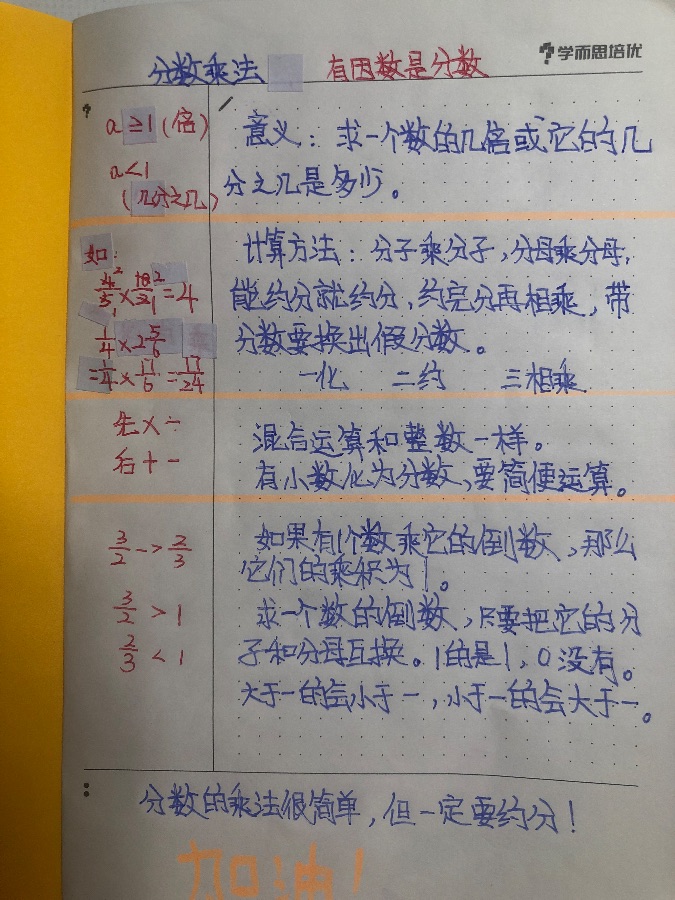 学而思培优
分数乘法 有因数是分数
a≥1(倍)
a<1
(几分之几)
意义：求一个数的几倍或它的几
分之几是多少。
如:
4/5×10/2=4
1/4×2 5/6
=1/4×17/6=17/24
计算方法：分子乘分子,分母乘分母,
能约分就约分,约完分再相乘,带
分数要换出假分数。
一化 二约 三相乘
先×÷
后+-
混合运算和整数一样。
有小数化为分数,要简便运算。
3/2->2/3
3/2>1
2/3<1
如果有1个数乘它的倒数,那么
它们的乘积为1。
求一个数的倒数,只要把它的分
子和分母互换。1的是1,0没有。
大于一的会小于一,小于一的会大于一。
分数的乘法很简单,但一定要约分!
加油!